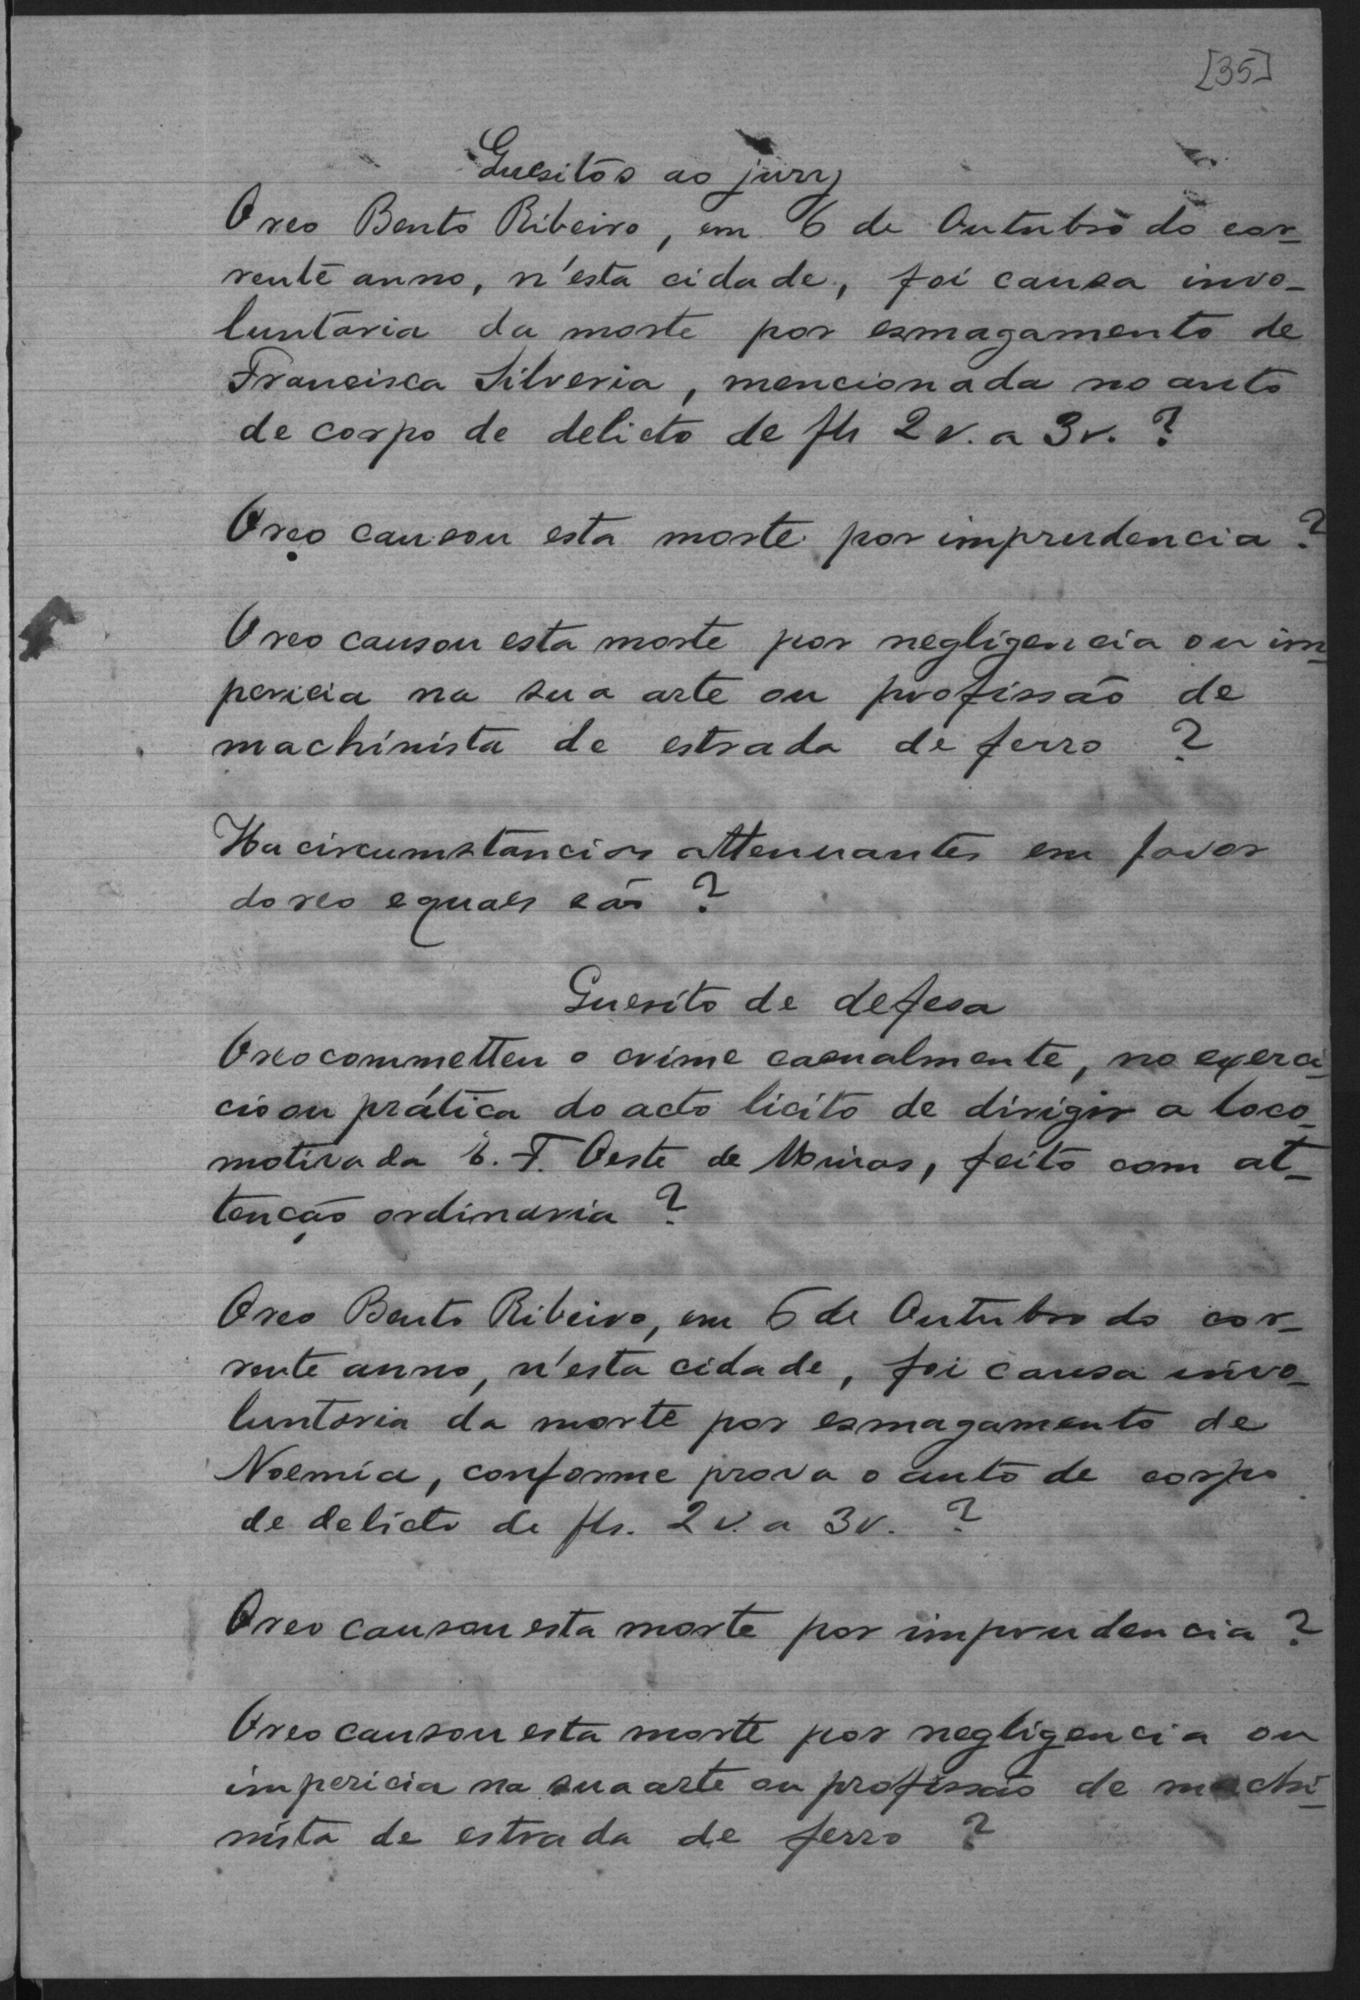 [35]
Quesitos ao jury
O reo Bento Ribeiro, em 6 de Outubro do cor-
rente anno, n'esta cidade, foi causa invo-
luntaria da morte por esmagamento de
Francisca Silveria, mencionada no auto
de corpo de delicto de fls 2 v. a 3 v. ?
O reo causou esta morte por imprudencia ?
O reo causou esta morte por negligencia ou im-
pericia na sua arte ou profissão de
machinista de estrada de ferro ?
Ha circumstancias attenuantes em favor
do reo e quaes são ?
Quesito de defesa
O reo commetteu o crime casualmente, no exerci-
cio ou prática do acto licito de dirigir a loco-
motiva da E. F. Oeste de Minas, feito com at-
tenção ordinaria ?
O reo Bento Ribeiro, em 6 de Outubro do cor-
rente anno, n'esta cidade, foi causa invo-
luntaria da morte por esmagamento de
Noemia, conforme prova o auto de corpo
de delicto de fls. 2 v. a 3 v. ?
O reo causou esta morte por imprudencia ?
O reo causou esta morte por negligencia ou
impericia na sua arte ou profissão de machi-
nista de estrada de ferro ?